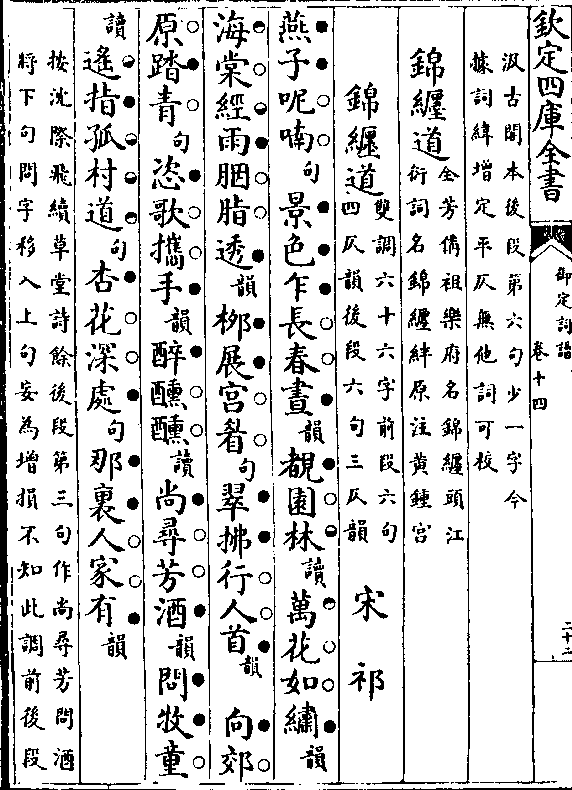 欽定四庫全書
御定詞譜
卷十四
二十二
汲古閣本後段第六句少一字今
據詞緯增定平仄無他詞可校
錦纏道
全芳備祖樂府名錦纏頭江
衍詞名錦纏絆原注黃鍾宮
錦纏道
雙調六十六字前段六句
四仄韻後段六句三仄韻
宋祁
燕子呢喃句景色乍長春晝韻覩園林讀萬花如繡韻
海棠經雨胭脂透韻柳展宮眉句翠拂行人首韻向郊
原踏青句恣歌攜手韻醉醺醺讀尚尋芳酒韻問牧童
讀遙指孤村道句杏花深處句那裏人家有韻
按沈際飛續草堂詩餘後段第三句作尚尋芳問酒
將下句問字移入上句妄為增損不知此調前後段